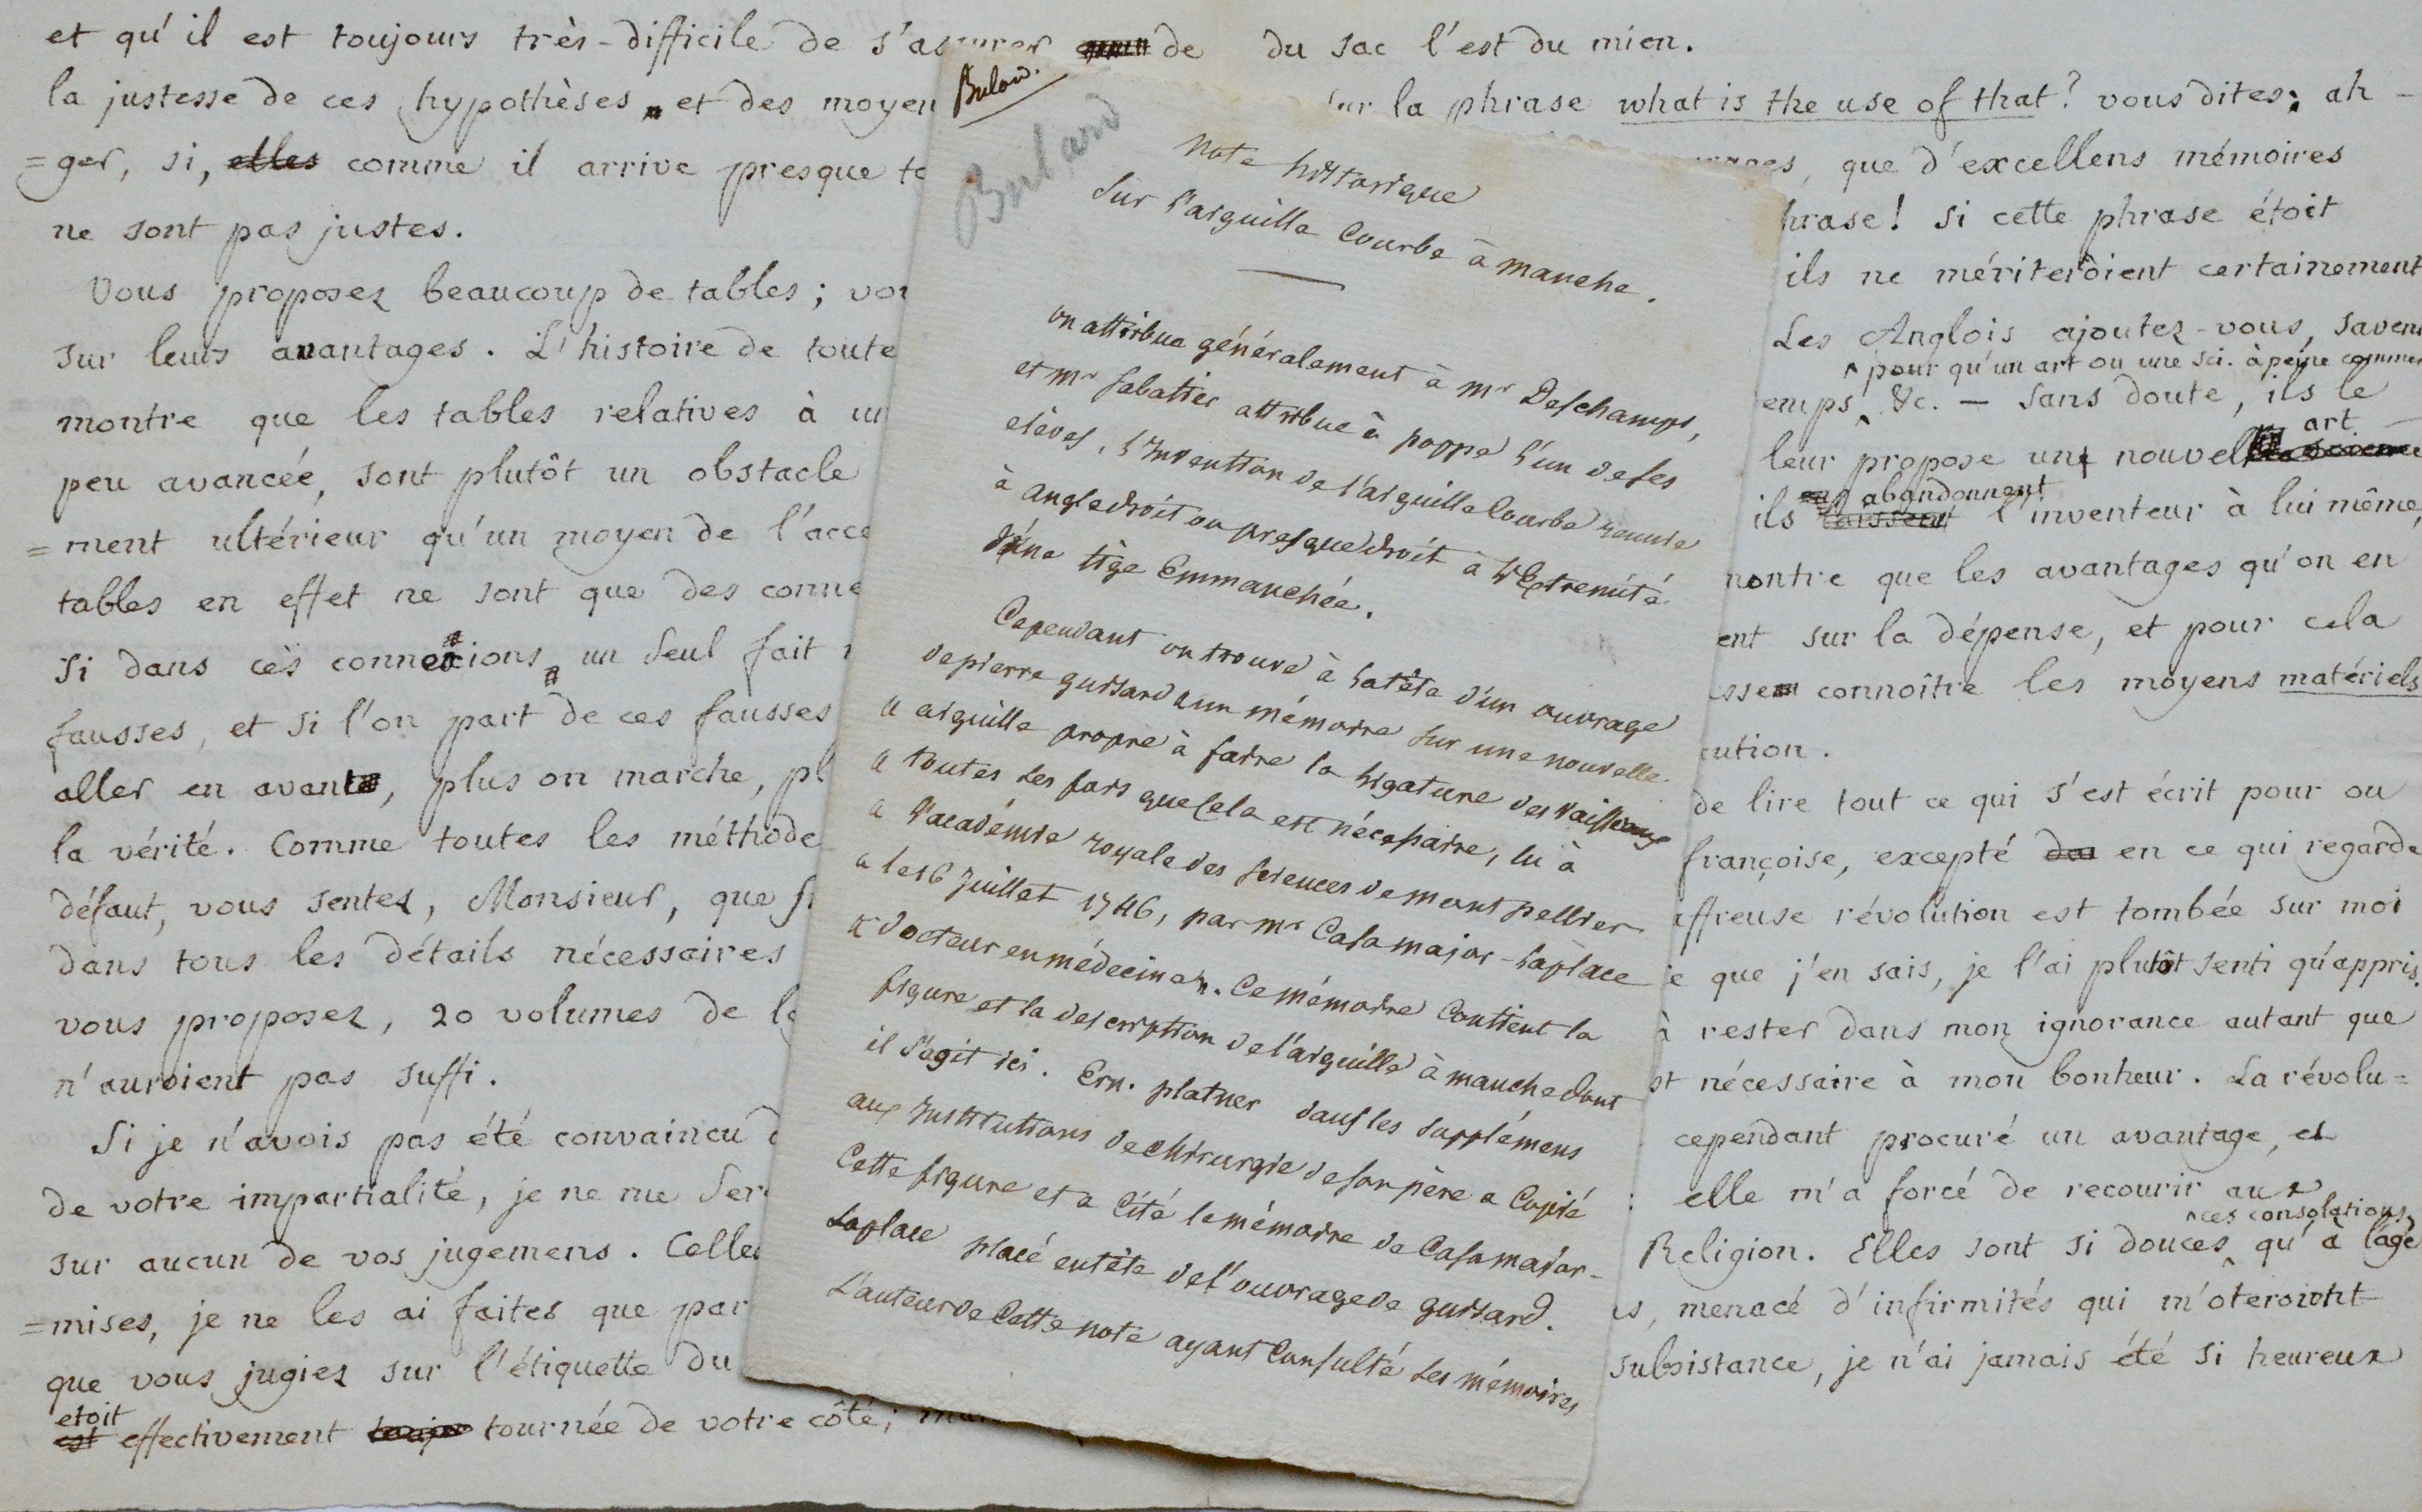 et qu'il est toujours très-difficile de s'assurer de
la justesse de ces hypothèses, et des moyen
=ger, si, elles comme il arrive presque to
ne sont pas justes.
Vous proposez beaucoup de tables; vou
sur leurs avantages. L'histoire de toute
montre que les tables relatives à un
peu avancée, sont plutôt un obstacle
=ment ultérieur qu'un moyen de l'acce
tables en effet ne sont que des conne
Si dans ces connexions, un seul fait
fausses, et si l'on part de ces fausses
aller en avant, plus on marche, pl
la vérité. Comme toutes les méthode
défaut, vous sentez, Monsieur, que si
dans tous les détails nécessaires
vous proposez, 20 volumes de
n'auroient pas suffi.
Si je n'avois pas été convaincu d
de votre impartialité, je ne me ser
sur aucun de vos jugemens. Celles
=mises, je ne les ai faites que par
que vous jugiez sur l'étiquette du
etoit
est effectivement tournée de votre côté; mai
Bulow.
Buland
Note historique
sur l'aiguille Courbe à manche.
on attribue généralement à mr Deschamps,
et mr sabatier attribue à poppe l'un de ses
elèves, l'Invention de l'aiguille Courbe reunie
à angle droit ou presque droit à l'Extremité
d'une tige Emmanchée.
Cependant on trouve à la tête d'un ouvrage
de pierre guisard « un mémoire sur une nouvelle
« aiguille propre à faire la ligature des vaisseaux
« toutes les fois que Cela est nécessaire, lu à
« l'academie royale des sciences de montpellier
« le 16 Juillet 1746, par mr Casamajor-Laplace
« docteur en médecine ». Ce mémoire Contient la
figure et la description de l'aiguille à manche dont
il s'agit ici. Ern. platner dans les supplémens
aux Institutions de chirurgie de son père a Copié
Cette figure et a Cité le mémoire de Casamajor-
Laplace placé entête de l'ouvrage de guisard.
L'auteur de Cette note ayant Consulté les mémoires
du sac l'est du mien.
sur la phrase what is the use of that? vous dites; ah -
que d'excellens mémoires
hrase! Si cette phrase étoit
ils ne mériteroient certainement
Les Anglois ajoutez-vous, savent
pour qu'un art ou une sci. à peine commen
emps, &c. — Sans doute, ils le
art
leur propose un nouvel science
en abandonnent
ils laissent l'inventeur à lui même,
montre que les avantages qu'on en
ent sur la dépense, et pour cela
connoître les moyens matériels
cution.
de lire tout ce qui s'est écrit pour ou
françoise, excepté en ce qui regarde
affreuse révolution est tombée sur moi
e que j'en sais, je l'ai plutôt senti qu'appris.
à rester dans mon ignorance autant que
st nécessaire à mon bonheur. La révolu=
cependant procuré un avantage, et
: elle m'a forcé de recourir aux
ces consolations,
Religion. Elles sont si douces qu'à l'age
s, menacé d'infirmités qui m'oteroient
subsistance, je n'ai jamais été si heureux